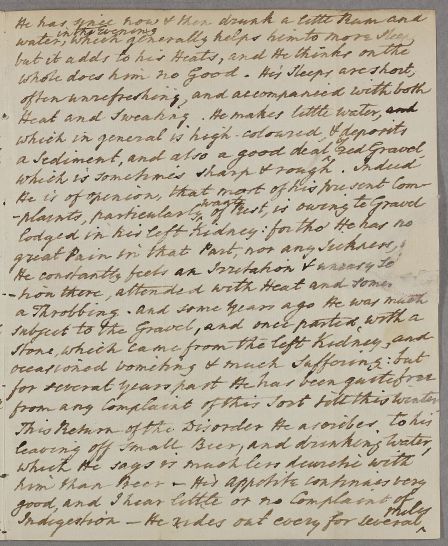 He has since now & then drunk a little Rum and
water, in the evening which generally helps him to more Sleep,
but it adds to his Heats, and He thinks on the
whole does him no Good. His Sleeps are short,
often unrefreshing, and accompanied with both
Heat and Sweating. He makes little water, and
which in general is high-coloured & deposits
a Sediment, and also a good deal of red Gravel
which is sometimes sharp & rough. Indeed
He is of opinion, that most of his present Com-
-plaints, particularly want of Rest, is owing to Gravel
lodged in his left Kidney: for tho He has no
great Pain in that Part, nor any Sickness,
He constantly feels an Irritation & uneasy
-tion there, attended with Heat and
a Throbbing. And some Years ago He was much
subject to the Gravel, and once parted with a
Stone, which came from the left Kidney, and
occasioned vomiting & much Suffering: but
for several Years past He has been quite free
from any Complaint of this Sort till this Winter
This Return of the Disorder He ascribes to his
leaving off Small Beer, and drinking Water,
which He says is much less diuretic with
him than Beer - His Appetite continues very
good, and I hear little or no Complaint of
Indigestion - He rides out every for several Miles